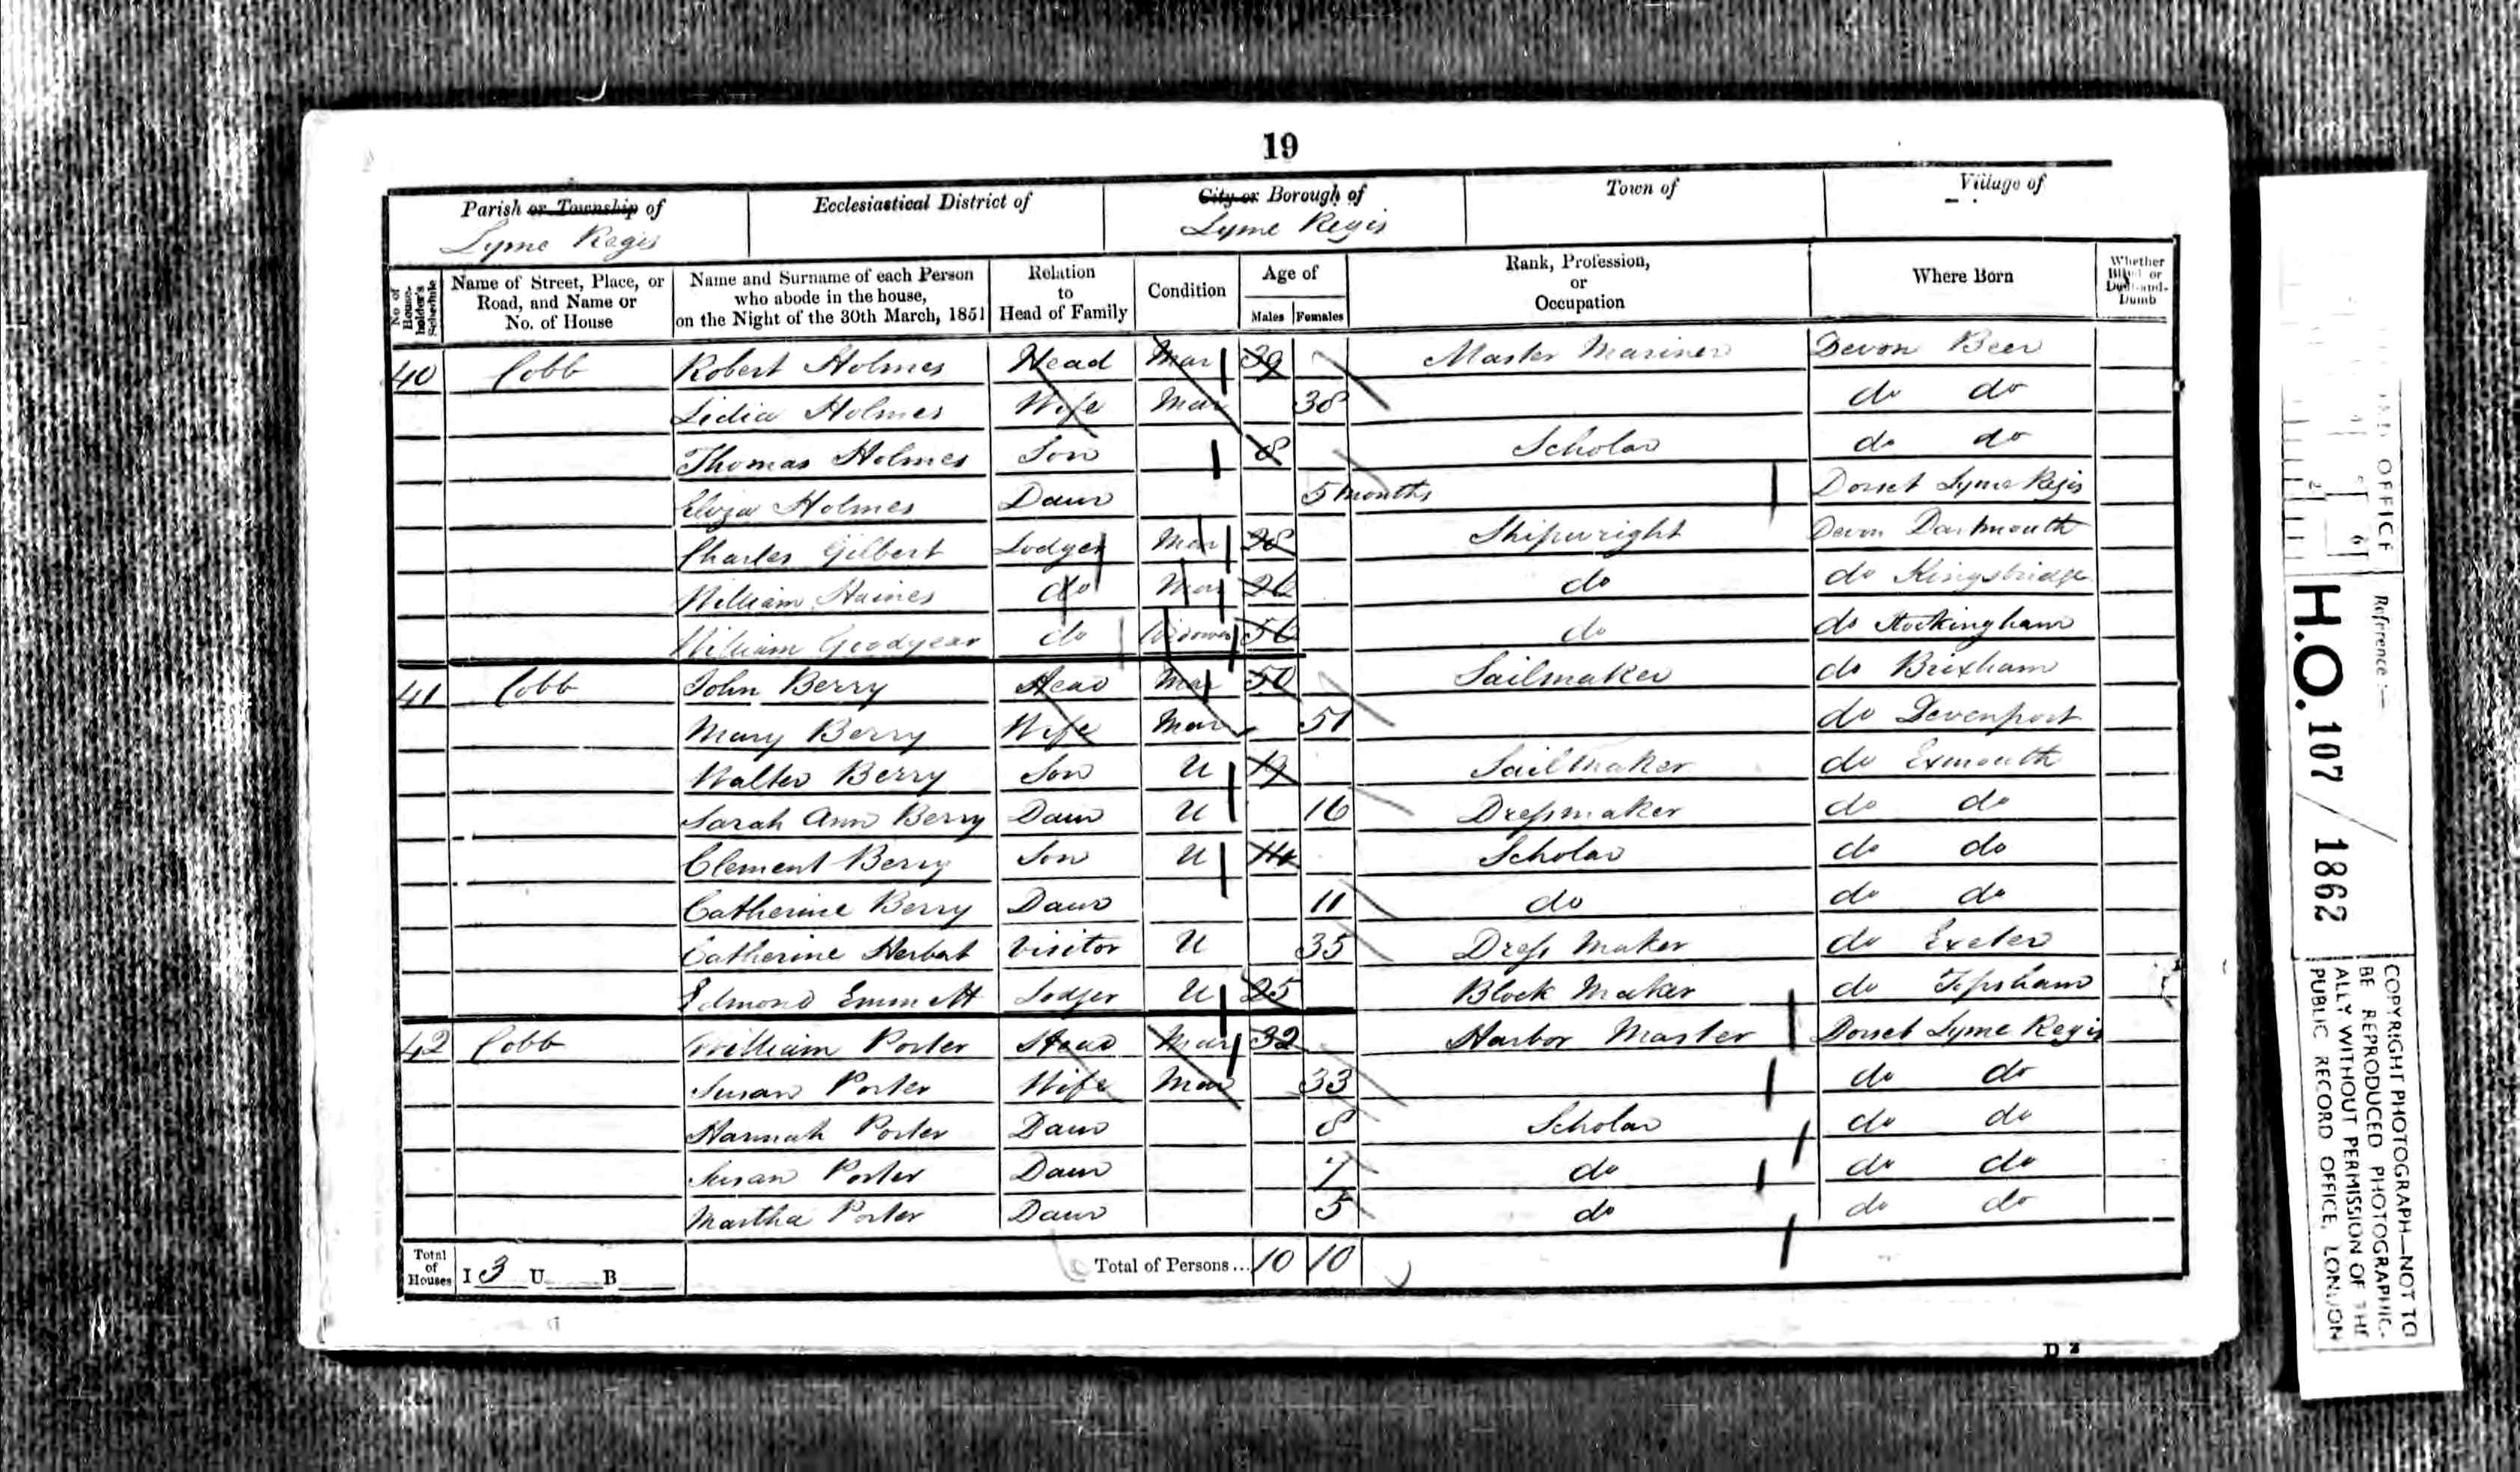 19
Parish or Township of
Lyme Regis
Ecclesiastical District of
City or Borough of
Lyme Regis
Town of
Village of
No. of House-holder's Schedule
Name of Street, Place, or Road, and Name or No. of House
Name and Surname of each Person who abode in the house, on the Night of the 30th March, 1851
Relation to Head of Family
Condition
Age of
Males Females
Rank, Profession, or Occupation
Where Born
Whether Blind or Deaf-and-Dumb
40 Cobb Robert Holmes Head Mar 39 Master Mariner Devon Beer
Lidia Holmes Wife Mar 38 do do
Thomas Holmes Son 8 Scholar do do
Eliza Holmes Daur 5 Months Dorset Lyme Regis
Charles Gilbert Lodger Mar 28 Shipwright Devon Dartmouth
William Haines do Mar 26 do do Kingsbridge
William Goodyear do Widower 56 do do Stokingham
41 Cobb John Berry Head Mar 50 Sailmaker do Brixham
Mary Berry Wife Mar 51 do Devenport
Walter Berry Son U 19 Sailmaker do Exmouth
Sarah Ann Berry Daur U 16 Dressmaker do do
Clement Berry Son U 14 Scholar do do
Catherine Berry Daur 11 do do do
Catherine Herbert Visitor U 35 Dress Maker do Exeter
Edmond Emmett Lodger U 25 Block Maker do Topsham
42 Cobb William Porter Head Mar 32 Harbor Master Dorset Lyme Regis
Susan Porter Wife Mar 33 do do
Hannah Porter Daur 8 Scholar do do
Susan Porter Daur 7 do do do
Martha Porter Daur 5 do do do
Total of Houses I 3 U B Total of Persons... 10 10
D 2
OFFICE
Reference:—
H.O. 107 / 1862
COPYRIGHT PHOTOGRAPH—NOT TO
BE REPRODUCED PHOTOGRAPHIC-
ALLY WITHOUT PERMISSION OF THE
PUBLIC RECORD OFFICE, LONDON